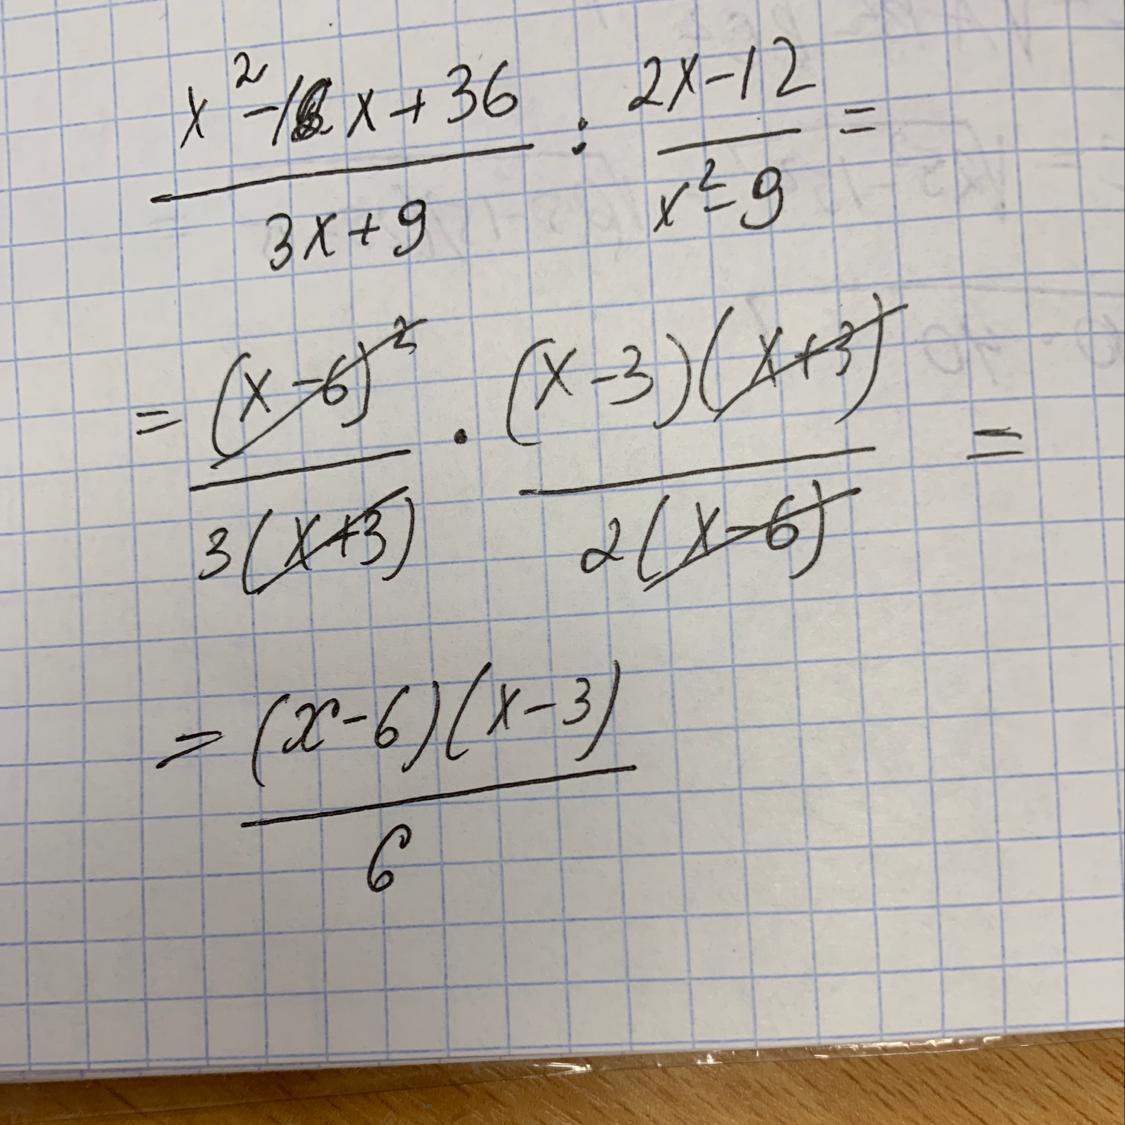 x² - 12x + 36 / 3x + 9 : 2x - 12 / x² - 9 =
= (x - 6)² / 3(x + 3) · (x - 3)(x + 3) / 2(x - 6) =
= (x - 6)(x - 3) / 6